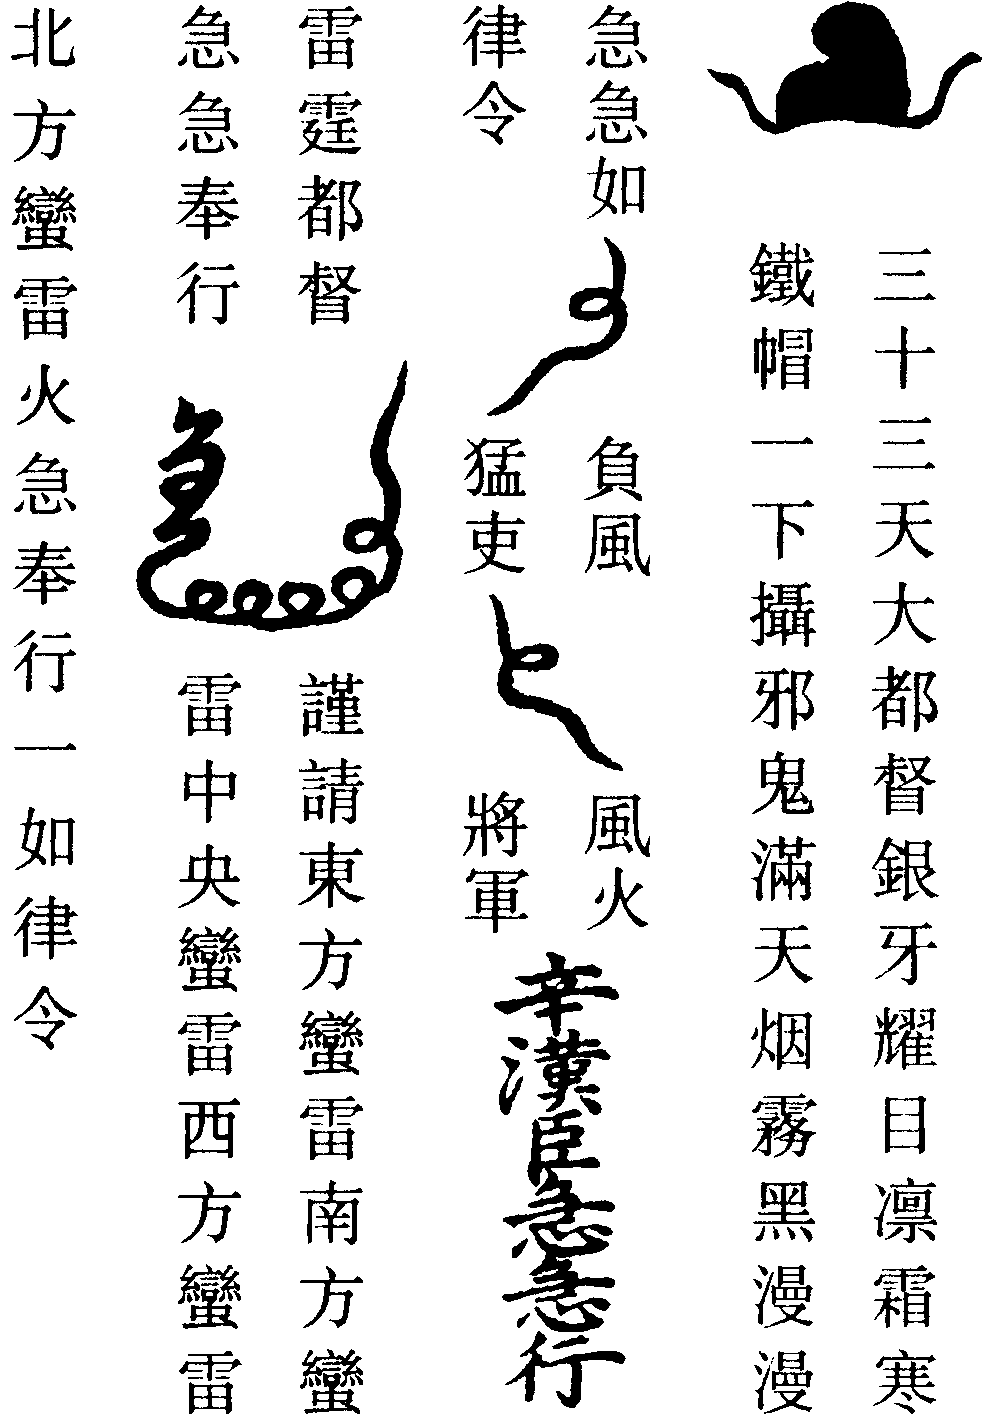 三十三天大都督銀牙耀目凛霜寒
鐵帽一下攝邪鬼滿天烟霧黑漫漫
急急如
律令
負風
猛吏
風火
將軍
辛漢臣急急行
雷霆都督
急急奉行
急
謹請東方蠻雷南方蠻
雷中央蠻雷西方蠻雷
北方蠻雷火急奉行一如律令